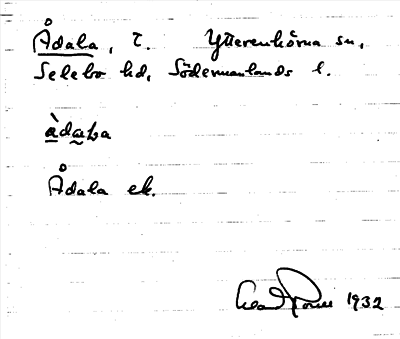 Ådala, T. Ytterenhörna sn,
Selebo hd, Södermanlands l.
àdaḷa
Ådala ek.
1932